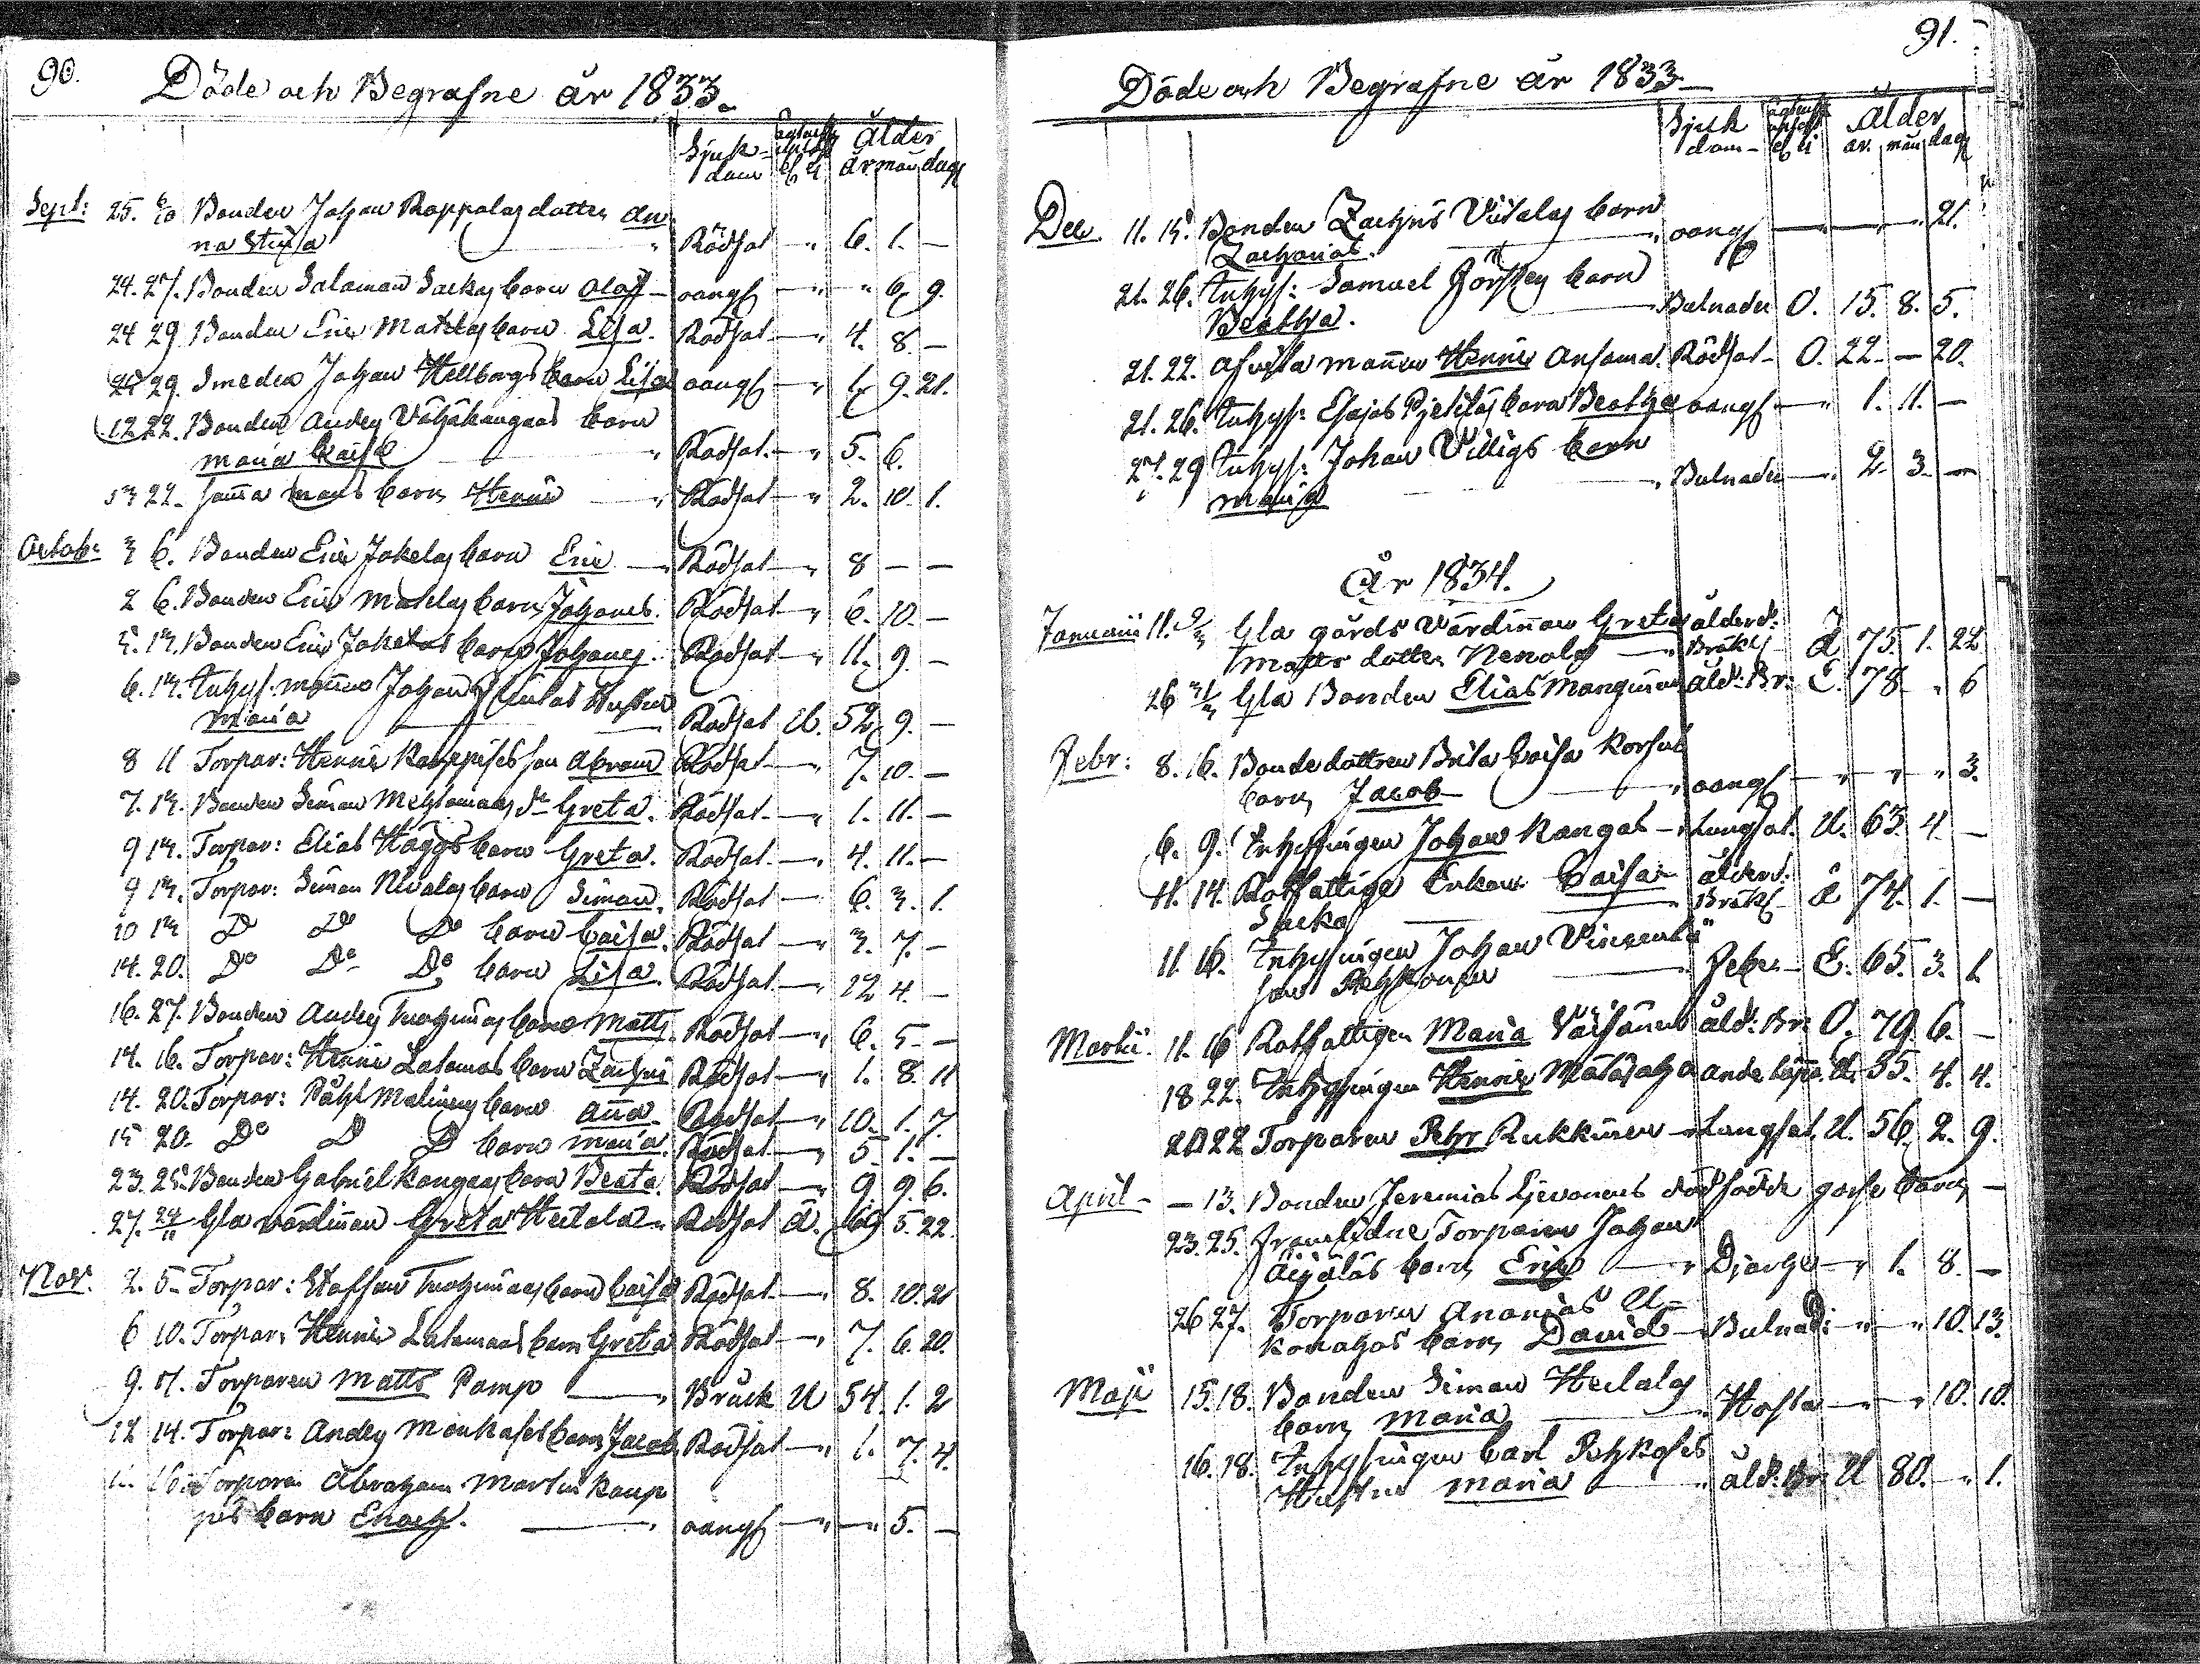 90.
Döde och Begrafne år 1833.
Sjuk-
dom
Ålder
år mån dag
Sept: 25. 6/10 Bonden Johan Rappalas dotter An
na Stina " Rödsot — " 6. 1. —
24. 27. Bonden Salomon Sarkas barn Olof — oangf — " " 6. 9.
24 29 Bonden Eric Matelas barn Lisa. Rödsot — " 4. 8. —
29. Smeden Johan Hellborgs barn Lisa oangf — " 1. 9. 21.
12 22. Bonden Anders Vähäkangas barn
Maria Caisa " Rödsot. — " 5. 6.
22. Samma mans barn Henric — " Rödsot — " 2. 10. 1.
Octob: 3 6. Bonden Eric Jokelas barn Eric — " Rödsot — " 8 — —
2 6. Bonden Eric Matelas barn Johannes. Rödsot — " 6. 10. —
5. 13. Bonden Eric Jokelas barn Johannes. Rödsot — " 11. 9. —
6. 13. Inhys. mannen Johan Hustru
Maria — Rödsot U. 52. 9. —
8 11 Torpar: Henric son Abram Rödsot — " 7. 10. —
7. 13. Bonden Simon Mehtomaas dr Greta. Rödsot — " 1. 11. —
9 13. Torpar: Elias Häggs barn Greta. Rödsot. — " 4. 11. —
9 13. Torpar: Simon Nivalas barn Simon. Rödsot — 6. 3. 1.
10 13 Do Do Do barn Caisa. Rödsot — " 3. 7. —
14. 20. Do Do Do barn Lisa. Rödsot. — " 12 4. —
16. 27. Bonden Anders barn Matts. Rödsot — " 6. 5. —
14. 16. Torpar: Henric Latomas barn Zachris Rödsot — " 1. 8. 11
14. 20. Torpar: Påhl Malinens barn Anna. Rödsot — " 10. 1. 7.
15 20. Do D D barn Maria. Rödsot — " 5 1. —
23. 25. Bonden Gabriel Kangas barn Beata. Rödsot — " 9. 9. 6.
27. Gla värdinnan Greta Heitala — " Rödsot Å. 69 5. 22.
Nov. 2. 5. Torpar: Staffan barn Caisa Rödsot — " 8. 10. 21
6 10. Torpar: Henric Latomaas barn Greta Rödsot — " 7. 6. 20.
9. 17. Torparen Matts Pamp — " Bråck U 54. 1. 2
12 14. Torpar: Anders barn Jacob Rödsot — " 1. 7. 4.
Torparen Abraham Martin Kaup
pis barn Enoch. — " oangf — " — " 5. —
91.
Döde och Begrafne år 1833 —
Sjuk
dom —
Ålder
år. mån dag
Dec. 11. 15. Bonden Zachris Viitalas barn
Zacharias. — " oangf — " — " 21.
21. 26. Inhys: Samuel barn
Beatha. — Bulnader O. 15. 8. 5.
21. 22. Afsista mannen Henric Ansama. Rödsot — O. 22. — 20.
21. 26. Inhys: Esajas barn Beatha oangf — " 1. 11. —
27. 29 Inhys: Johan Villigs barn
Maria — " Bulnader — " 2. 3. —
År 1834.
Januarii 11. Gla gårds Värdinnan Greta ålderd:
Matts dotter Nenola — " Bräkl — Å 75. 1. 22
26 Gla Bonden Elias Manguinen åld: Br: E. 78 " 6
Febr: 8. 16. Bonde dottren Brita Caisa
barn Jacob — " oangf — " " " 3.
6. 9. Inhysingen Johan Kangas — " Lungsot. U. 63. 4. —
11. 14. Rotfattiga Enkan Caisa ålderd:
Sarka — " Bräkl — Å 74. 1. —
11. 16. Inhysingen Johan
son — " Feber — E. 65. 3. 1.
Martii. 11. 16 Rotfattigen Maria Väisänen åld: Br: O. 79. 6. —
18 22. Inhysingen Henric U. 35. 4. 4.
20 22 Torparen Pehr Rukkinen — " Lungsot. U. 56. 2. 9.
April — — 13. Bonden Jeremias Lievonens dödfödde gosse barn —
23. 25. Framlidne Torparen Johan
Äijäläs barn Eric — " Diarhe — " 1. 8. —
26 27. Torparen Ananias U-
konahos barn David — Bulnad: " " 10. 13.
Maji 15. 18. Bonden Simon Heitalas
barn Maria — " Hosta — " " 10. 10.
16. 18. Inhysingen Carl
Hustru Maria — " åld: Br: U 80. — " 1.